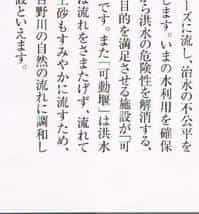 ーズに流し、治水の不公平を
します。いまの水利用を確保
ら洪水の危険性を解消する、
目的を満足させる施設が「可
です。また「可動堰」は洪水
は流れをさまたげず、流れて
土砂もすみやかに流すため、
吉野川の自然の流れに調和し
設といえます。